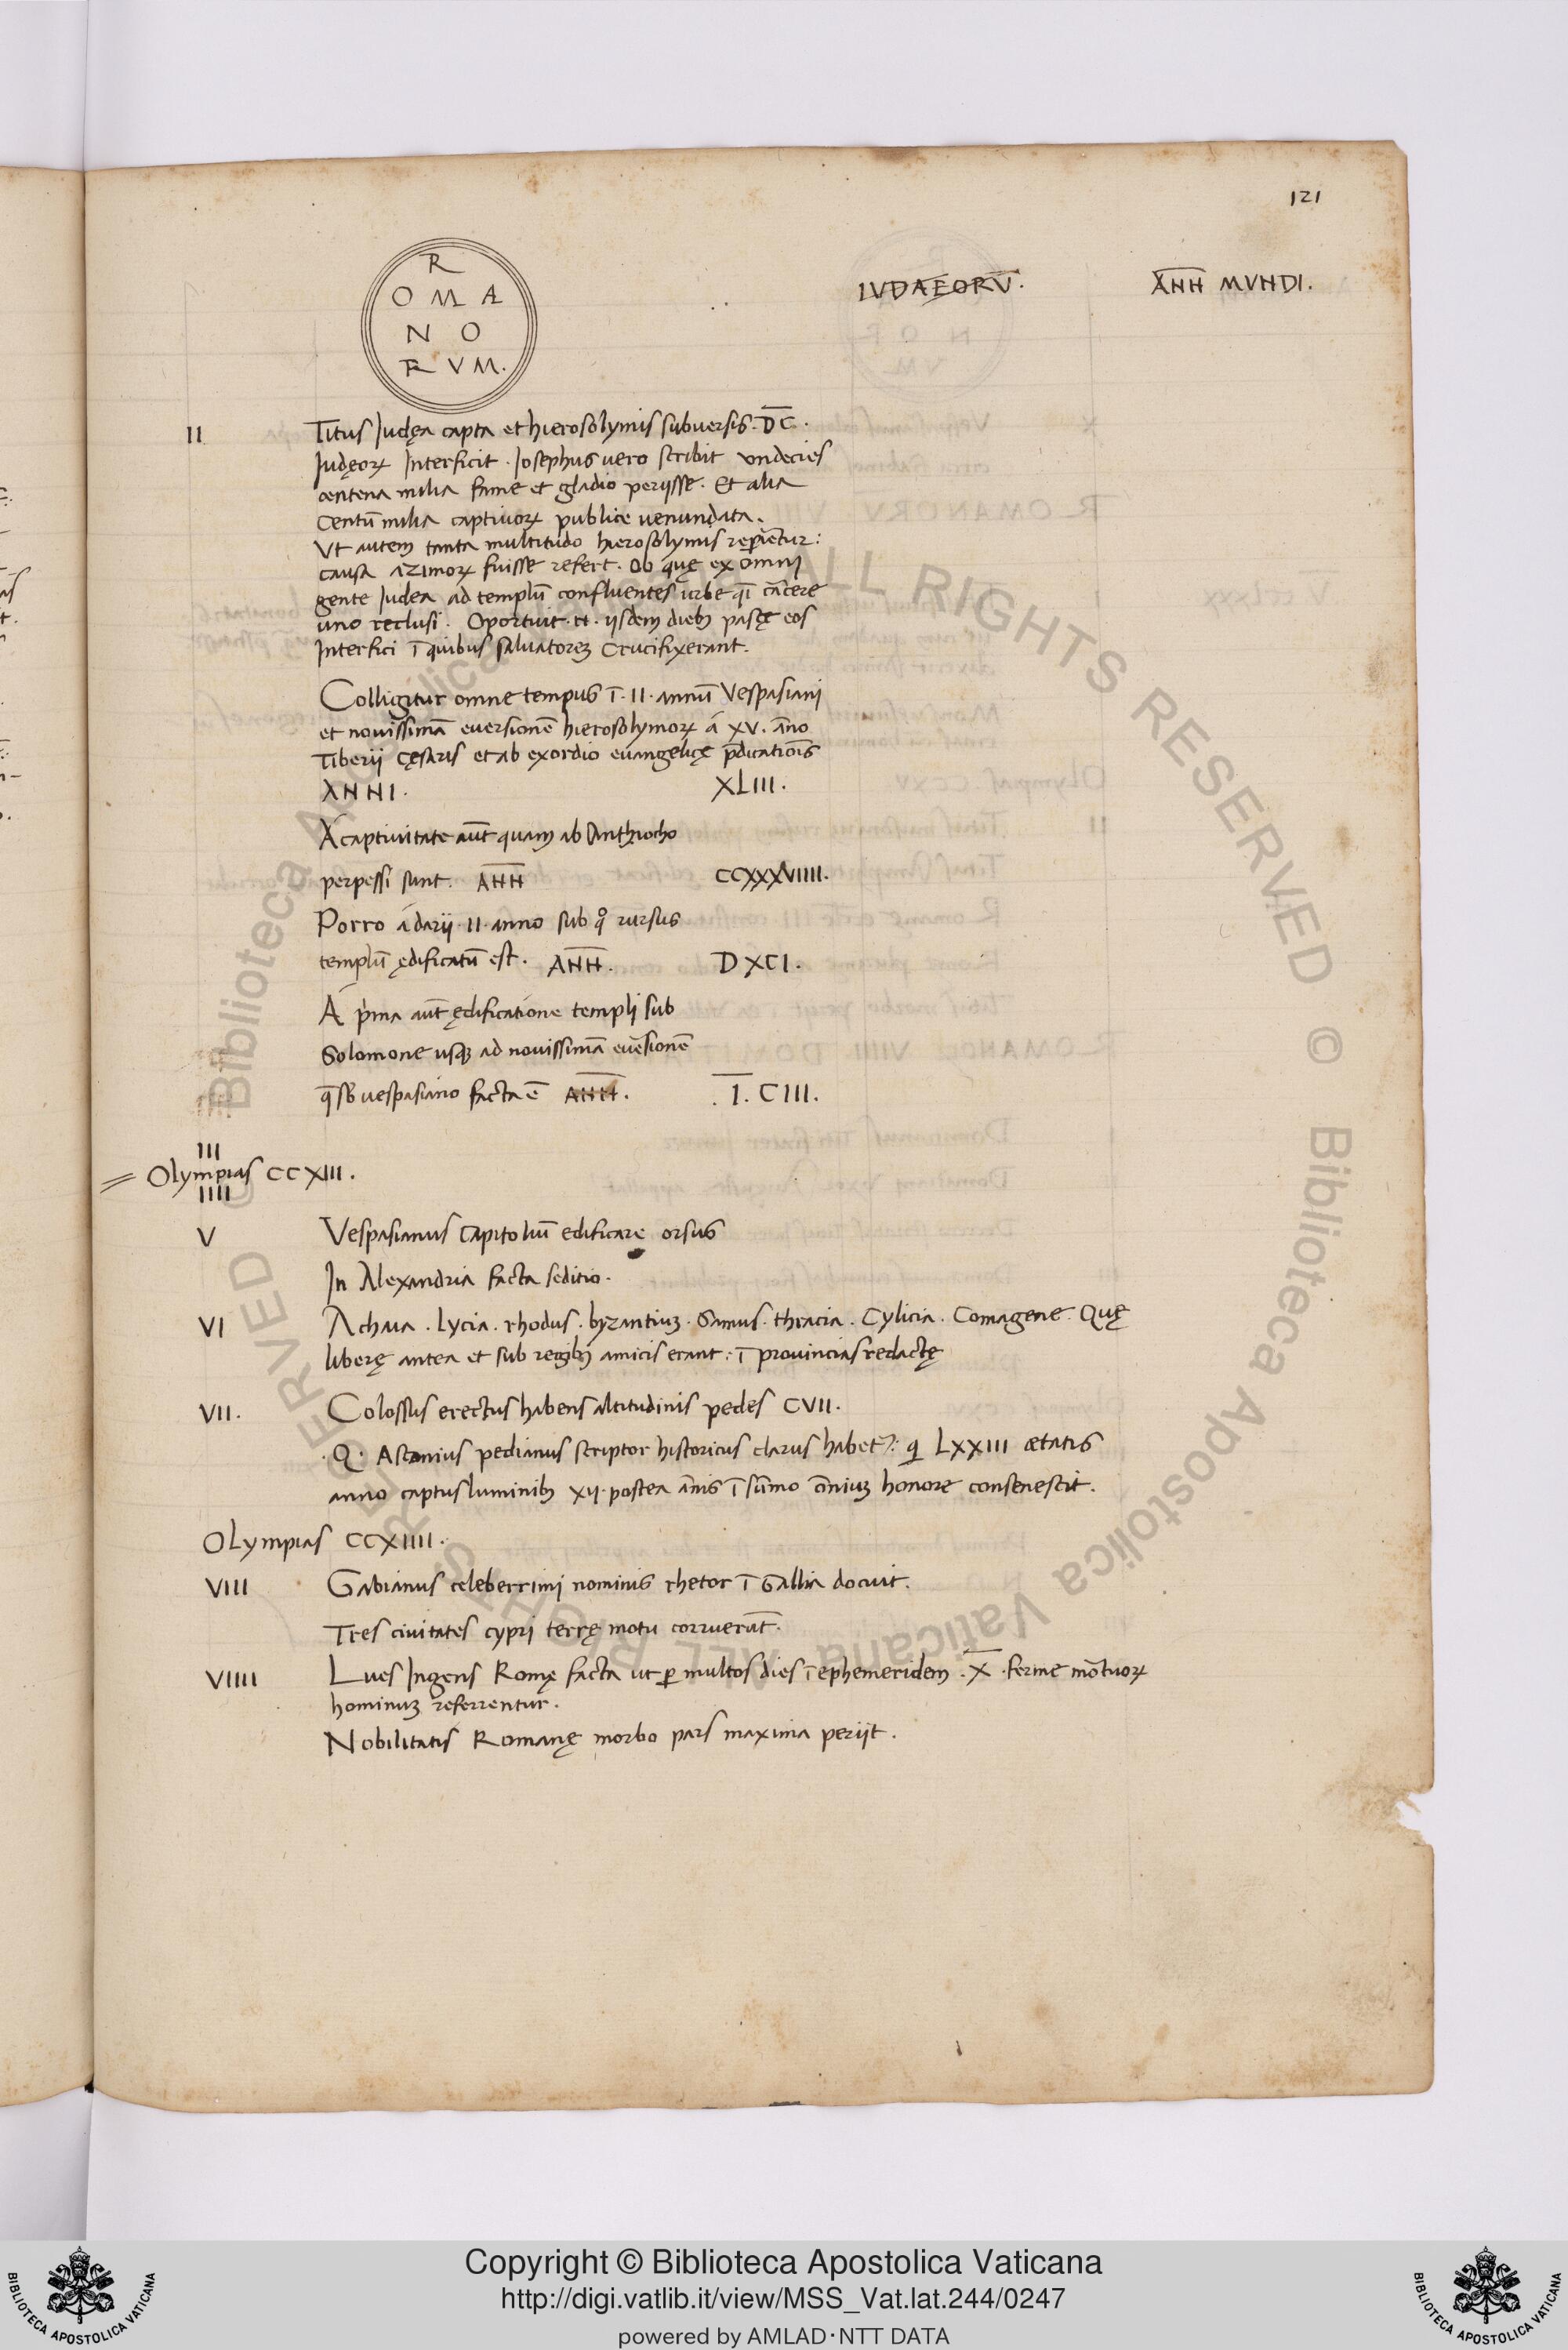 121
R
O M A
N O
R V M.
IVDAEORV̅.
A̅N̅N̅ MVNDI.
II Titus Judęa capta et hierosolymis subuersis. D̅C̅.
Judęoꝝ Interficit. Josephus uero scribit undecies
centena milia fame et gladio periisse. Et alia
Centū milia captiuoꝝ publice uenundata.
Vt autem tanta multitudo hierosolymis reperiētur:
causa azimoꝝ fuisse refert. Ob quę ex omni
gente Judea ad templū confluentes urbe qͣī cārcere
uno reclusi. Oportuit. et. iisdem diebꝫ pascę eos
Interfici ī quibus saluatoreꝫ Crucifixerant.
Colligitur omne tempus ī. II. annū Vespasiani
et nouissimā euersionē hierosolymoꝝ á XV. āno
Tiberii Cęsaris et ab exordio euangelicę p̄dicatiōis
ANNI. XLIII.
Á captiuitate aūt quam ab Anthiocho
perpessi sunt. A̅N̅N̅ CCXXXVIIII.
Porro á darii. II. anno sub qͦ rursus
templū ędificatū est. A̅N̅N̅. DXCI.
Á pͥma aūt ędificatione templi sub
Solomone usqꝫ ad nouissimā euersionē
q̄ sb̄ uespasiano facta ē A̅N̅N̅. .I̅. CIII.
III
= Olympias CCXIII.
IIII
V Vespasianus Capitoliū edificare orsus
In Alexandria facta seditio.
VI Achaia. Lycia. rhodus. byzantiuꝫ. Samus. thracia. Cylicia. Comagene. Quę
liberę antea et sub regibꝫ amicis erant: ī prouincias redactę
VII. Colossus erectus habens altitudinis pedes CVII.
.Q. Asconius pedianus scriptor historicus clarus habet̄: qͥ LXXIII ætatis
anno captus luminibꝫ XII. postea ānis ī sūmo ōmniuꝫ honore consenescit.
OLympias CCXIIII.
VIII Gabianus celeberrimi nominis rhetor ī Gallia docuit.
Tres ciuitates cypri terrę motu corruerāt.
VIIII Lues Ingens Romę facta ut ꝑ multos dies ī ephemeridem .X̅. ferme mōrtuoꝝ
hominuꝫ referrentur.
Nobilitatis Romanę morbo pars maxima periit.
© Biblioteca Apostolica Vaticana ALL RIGHTS RESERVED © Biblioteca Apostolica Vaticana ALL RIGHTS RESERVED
Copyright © Biblioteca Apostolica Vaticana
http://digi.vatlib.it/view/MSS_Vat.lat.244/0247
powered by AMLAD·NTT DATA
BIBLIOTECA APOSTOLICA VATICANA
BIBLIOTECA APOSTOLICA VATICANA